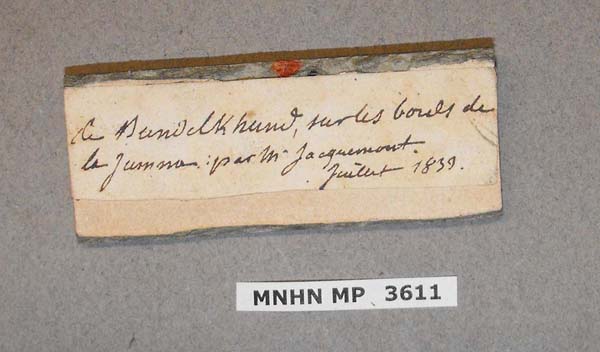 de Bundelkhund, sur les bords de
la Jumna. : par Mr Jacquemont.
Juillet 1833.
MNHN MP 3611